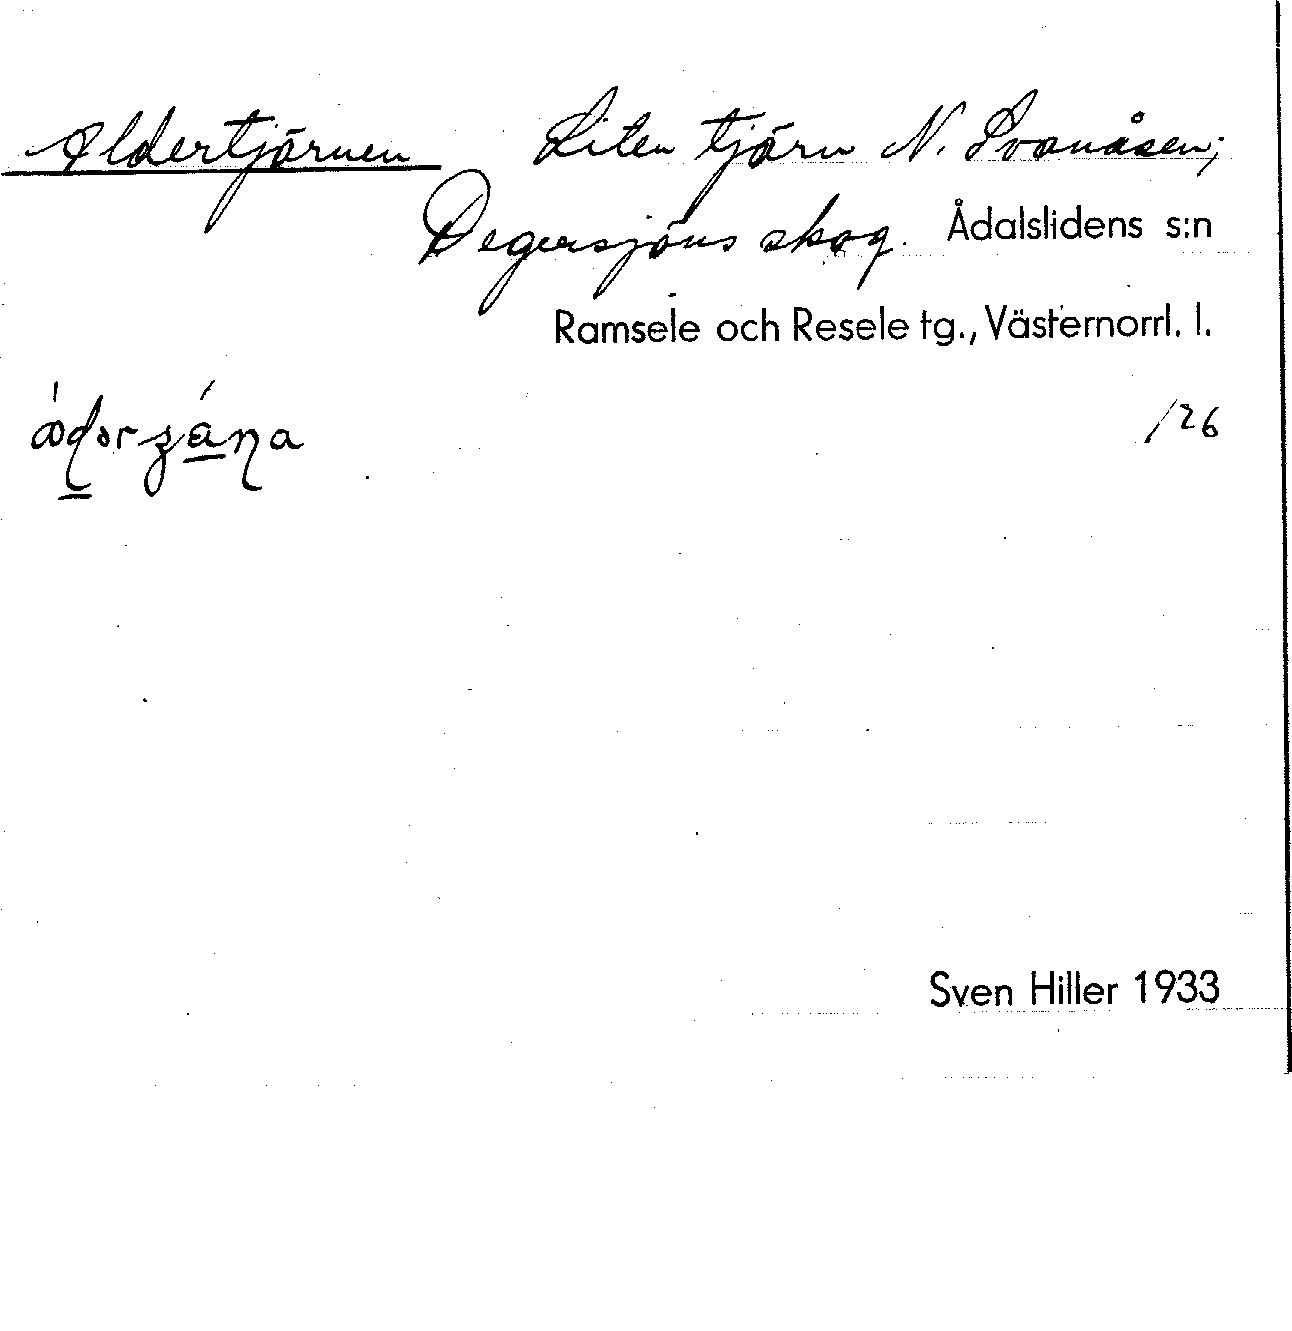 Aldertjärnen Liten tjärn N. Svanåsen;
Degersjöns skog. Ådalslidens s:n
Ramsele och Resele tg., Västernorrl. l.
/26
Sven Hiller 1933